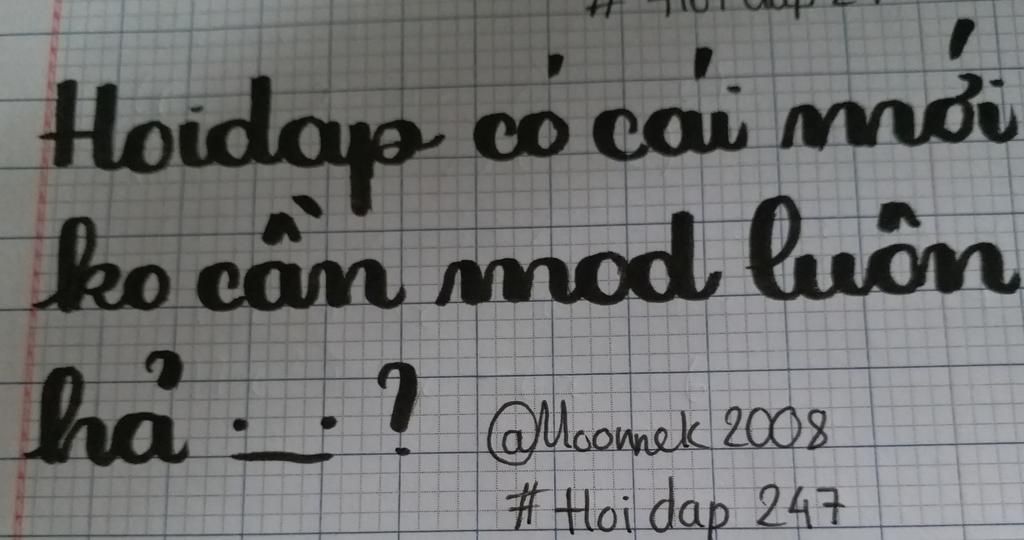 # Hoi dap 24
Hoidap có cái mới
ko cần mod luôn
hả ._. ?
@Moomek 2008
# Hoi dap 247